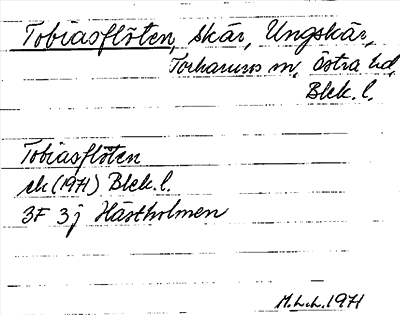 Tobiasflöten, skär, Ungskär,
Torhamns sn, Östra hd,
Blek. l.
Tobiasflöten
ek (1971) Blek. l.
3F 3j Hästholmen
1971